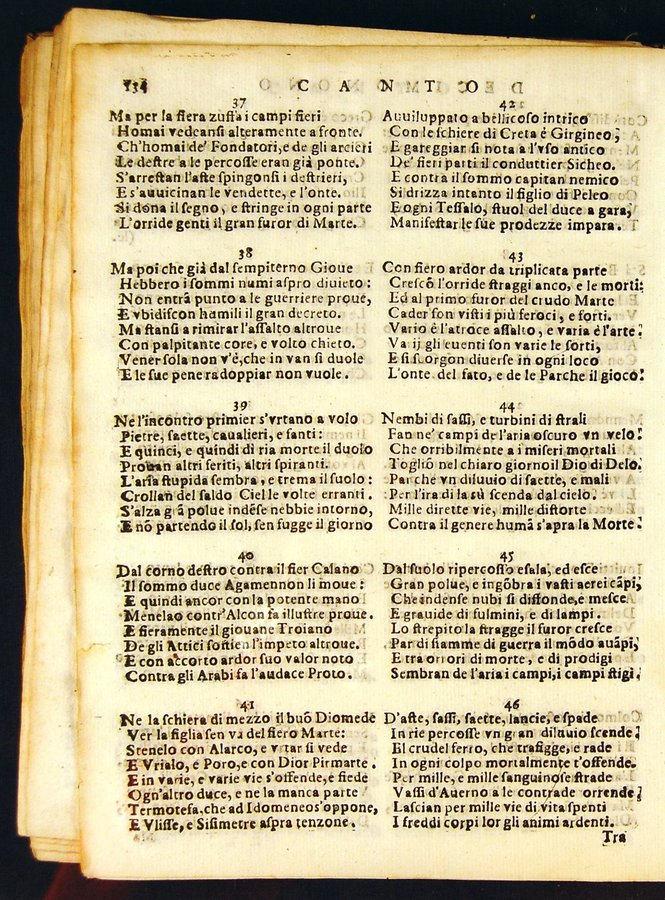 134 CANTO
37
Ma per la fiera zuffa i campi fieri
Homai vedeansi alteramente a fronte.
Ch'homai de' Fondatori, e de gli arcieri
Le destre a le percosse eran già ponte.
S'arrestan l'aste spingonsi i destrieri,
E s'auuicinan le vendette, e l'onte.
Si dona il segno, e stringe in ogni parte
L'orride genti il gran furor di Marte.
38
Ma poi che già dal sempiterno Gioue
Hebbero i sommi numi aspro diuieto:
Non entrā punto a le guerriere proue,
E vbidiscon hamili il gran decreto.
Ma stansi a rimirar l'assalto altroue
Con palpitante core, e volto chieto.
Vener sola non v'é, che in van si duole
E le sue pene radoppiar non vuole.
39
Ne l'incontro primier s'vrtano a volo
Pietre, saette, caualieri, e fanti:
E quinci, e quindi di ria morte il duolo
Prouan altri feriti, altri spiranti.
L'aria stupida sembra, e trema il suolo:
Crollan del saldo Ciel le volte erranti.
S'alza grā polue indése nebbie intorno,
E nō partendo il sol, sen fugge il giorno
40
Dal corno destro contra il fier Calano
Il sommo duce Agamennon li moue:
E quindi ancor con la potente mano
Menelao contr'Alcon fa illustre proue.
E fieramente il giouane Troiano
De gli Attici sostien l'impeto altroue.
E con accorto ardor suo valor noto
Contra gli Arabi fa l'audace Proto.
41
Ne la schiera di mezzo il buō Diomede
Ver la figlia sen va del fiero Marte:
Stenelo con Alarco, e vrtar si vede
E Vrialo, e Poro, e con Dior Pirmarte.
E in varie, e varie vie s'offende, e fiede
Ogn'altro duce, e ne la manca parte
Termotesa, che ad Idomeneo s'oppone,
E Vlisse, e Sisimetre aspra tenzone.
42
Auuiluppato a bellicoso intrico
Con le schiere di Creta é Girgineo;
E gareggiar si nota a l'vso antico
De' fieri parti il conduttier Sicheo.
E contra il sommo capitan nemico
Si drizza intanto il figlio di Peleo
E ogni Tessalo, stuol del duce a gara,
Manifestar le sue prodezze impara.
43
Con fiero ardor da triplicata parte
Crescō l'orride straggi anco, e le morti:
Ed al primo furor del crudo Marte
Cader son visti i più feroci, e forti.
Vario è l'atroce assalto, e varia è l'arte:
Va ij gli euenti son varie le sorti,
E si suorgon diuerse in ogni loco
L'onte del fato, e de le Parche il gioco:
44
Nembi di sassi, e turbini di strali
Fan ne' campi de l'aria oscuro vn velo:
Che orribilmente a i miseri mortali
Togliō nel chiaro giorno il Dio di Delo.
Par che vn diluuio di saette, e mali
Per l'ira di la sù scenda dal cielo.
Mille dirette vie, mille distorte
Contra il genere humā s'apra la Morte.
45
Dal suolo ripercosso esala, ed esce
Gran polue, e ingōbra i vasti aerei cāpi,
Che indense nubi si diffonde, e mesce
E grauide di fulmini, e di lampi.
Lo strepito la stragge il furor cresce
Par di fiamme di guerra il mōdo auāpi,
E tra orrori di morte, e di prodigi
Sembran de l'aria i campi, i campi stigi.
46
D'aste, sassi, saette, lancie, e spade
In rie percosse vn gran diluuio scende:
El crudel ferro, che trafigge, e rade
In ogni colpo mortalmente t'offende.
Per mille, e mille sanguinose strade
Vassi d'Auerno a le contrade orrende;
Lascian per mille vie di vita spenti
I freddi corpi lor gli animi ardenti.
Tra